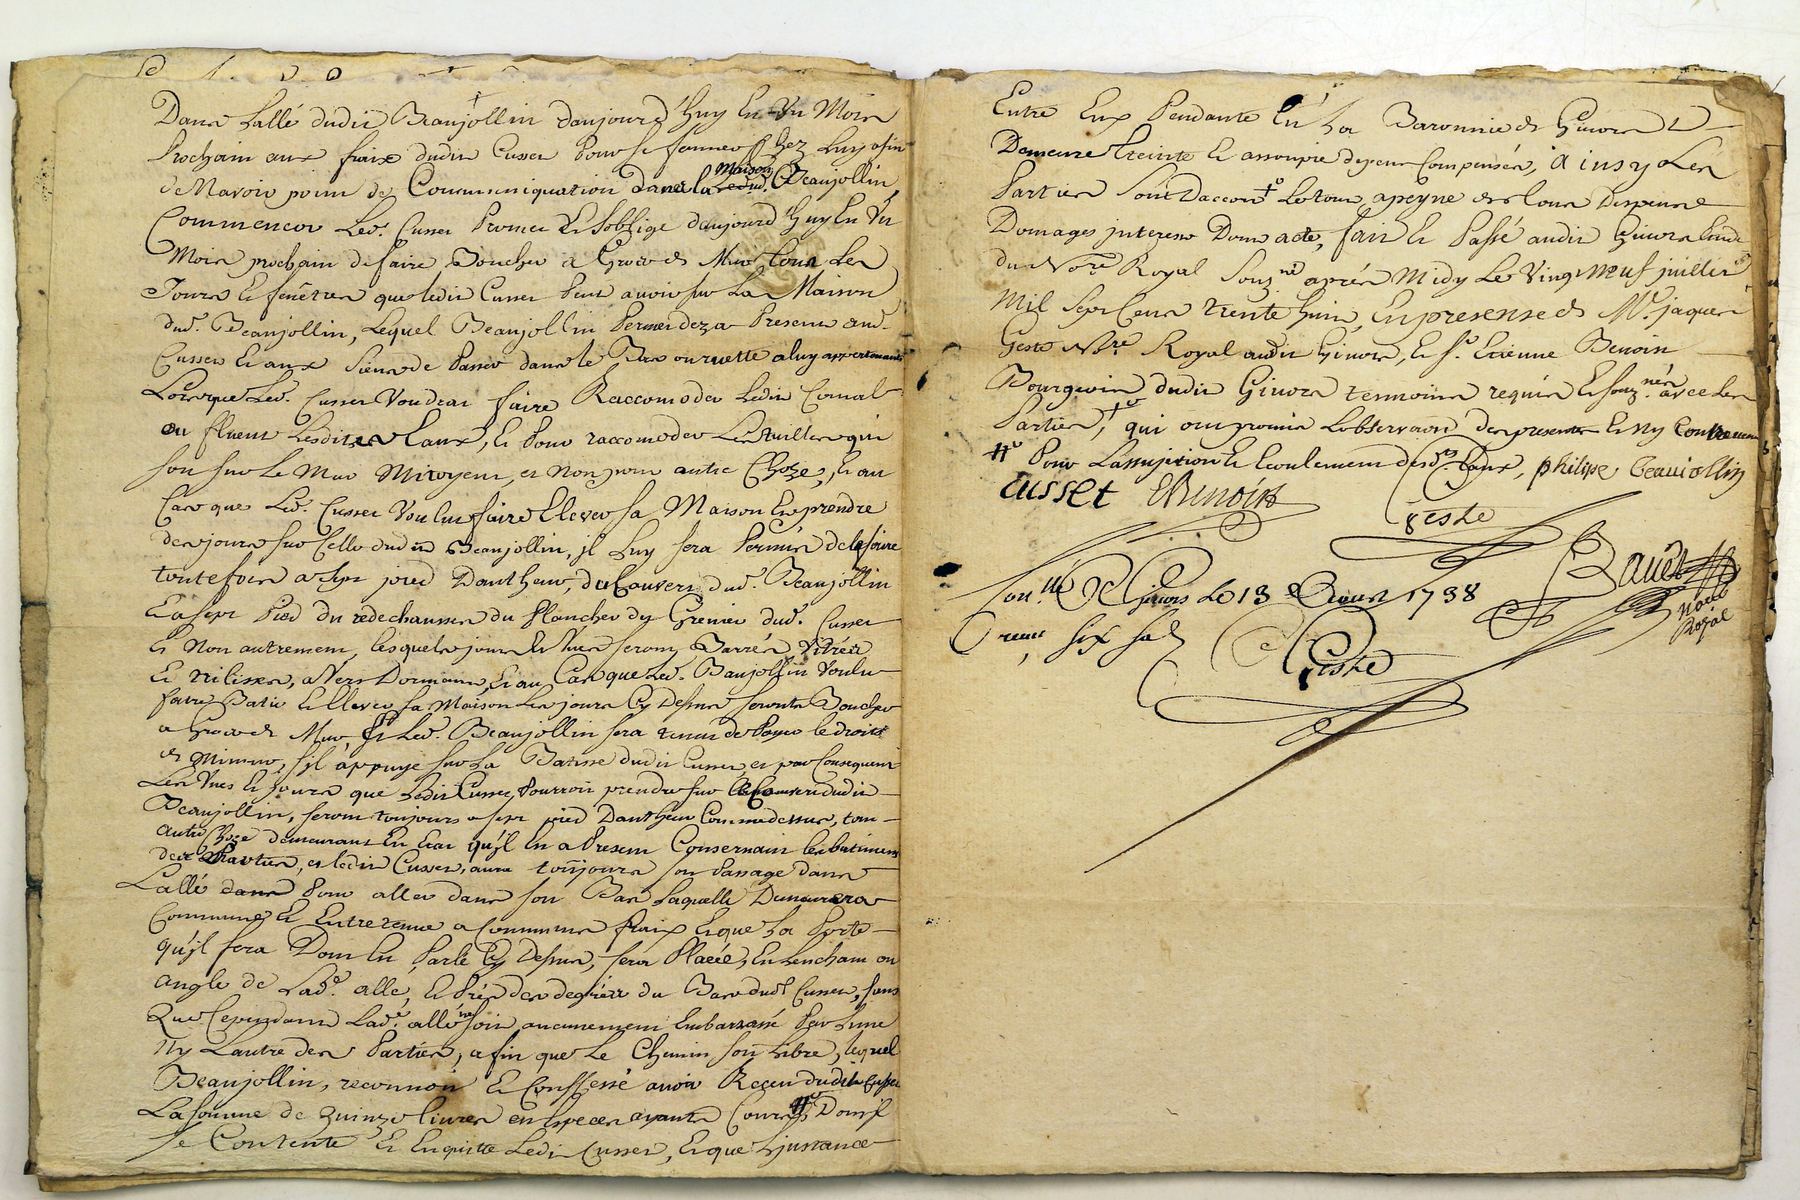 Dans Lallé dudit Beaujollin daujourd'huy En Un Mois
Prochain aux fraix dudit Cusset Pour se fermer Chez Luy afin
de Navoir point de Communiquation dans la maison dud. Beaujollin,
Commencer Led. Cusset Promet Et Soblige daujourd'huy En Un
Mois prochain de faire Boucher a Gros de Mur tous Les
Jours Et fenêtres que ledit Cusset Peut avoir sur La Maison
dud. Beaujollin, Lequel Beaujollin Permet deza Present aud.
Cusset Et aux Siens de Passer dans le Bas ou ruette a luy appartenante
Lorsque Led. Cusset Voudrat faire Raccomoder Ledit Cornal
ou fluent Lesdites Eaux, Et Pour raccomoder Les tuilles qui
son sur Le Mur Mitoyent, et Non pour autre Choze, Et au
Cas que Led. Cusset Voulut faire Elever sa Maison Et prendre
des jours sur Celle dudit Beaujollin, jl Luy sera Permis de le faire
toutefois a Sept pied Dautheur, du Couvert dud. Beaujollin
Et a sept Pied du redechausser du Plancher du Grenier dud. Cusset
Et Non autrement, Lesquels jours Et Vues seront Barrés Vitrés
Et Treilissés, a Vers Dormant, Et au Cas que Led. Baujollin Voulut
faire Batir Et Elever sa Maison Les jours Cy Dessus seronts Bouchés
a Gros de Mur Et Led. Beaujollin sera tenus de Payer le droit
de Mimur, s'jl appuye sur La Batisse dudit Cusset, et par Consequent
Les Vues Et jours que Ledit Cusset Pourroit prendre sur Le Couvert dudit
Beaujollin, seront toujours a sept pied Dautheur Comme dessus, tout
autre Choze demeurant En Etat qu'jl En a Present Consernant les batiments
des Parties, et ledit Cusset, aura toujours son Passage dans
Lallé dans Pour aller dans son Bas Laquelle Demeurera
Commune Et Entretenue a Communs fraix Et que La Porte
qu'jl sera Dont En Parlé Cy Dessus, sera Placée, En Lenchant ou
angle de Lade. allé, Et Près des degrés du Bas dudt Cusset, sans
Que Cependant Lade. allé ne soit aucunement Embarrassé Par Lune
Ny Lautre des Parties, afin que Le Chemin soit Libre, lequel
Beaujollin, reconnoit Et Confessé avoir Reçeu dudit Cusset
La somme de quinze livres en Especes ayants Cours # Dont jl
se Contente Et En quitte Ledit Cusset, Et que Ljnstance
Entre Eux Pendante En La Baronnie de Givors
Demeure Eteinte Et assoupie depens Compensés, Ainsy Les
Parties Sont Daccord Letout apeyne de tous Depens
Domages jnterest Dont acte, fait Et Passé audit Givors Etude
du Nore Royal Souzné après Midy Le Vingt neuf juillet
Mil Sept Cent trente huit, En presense de Me. jaques
Geste Nore Royal audit Givors, Et sr. Etienne Benoit
Bourgeois dudit Givors temoins requis Et souznés avec Les
Parties, qui ont promis Lobservation des presentes Et Ny Contrevenir
# Pour Lassujetion Et Ecoulement desds. Eaux, philipe Beauiollin
Cusset EBenoist
Geste
Bauet
nore
Royal
Conllé A Givors Le 13 Aoust 1738
Receu six sols
Geste